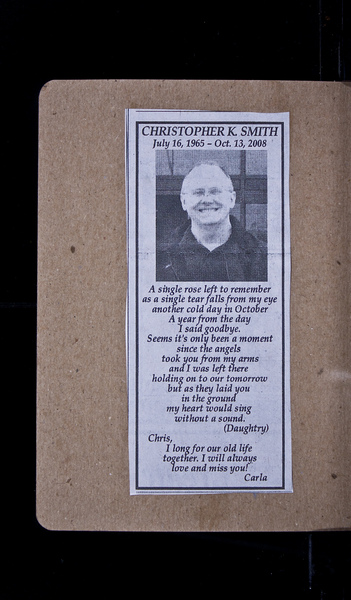 CHRISTOPHER K. SMITH
July 16, 1965 – Oct. 13, 2008
A single rose left to remember
as a single tear falls from my eye
another cold day in October
A year from the day
I said goodbye.
Seems it's only been a moment
since the angels
took you from my arms
and I was left there
holding on to our tomorrow
but as they laid you
in the ground
my heart would sing
without a sound.
(Daughtry)
Chris,
I long for our old life
together. I will always
love and miss you!
Carla